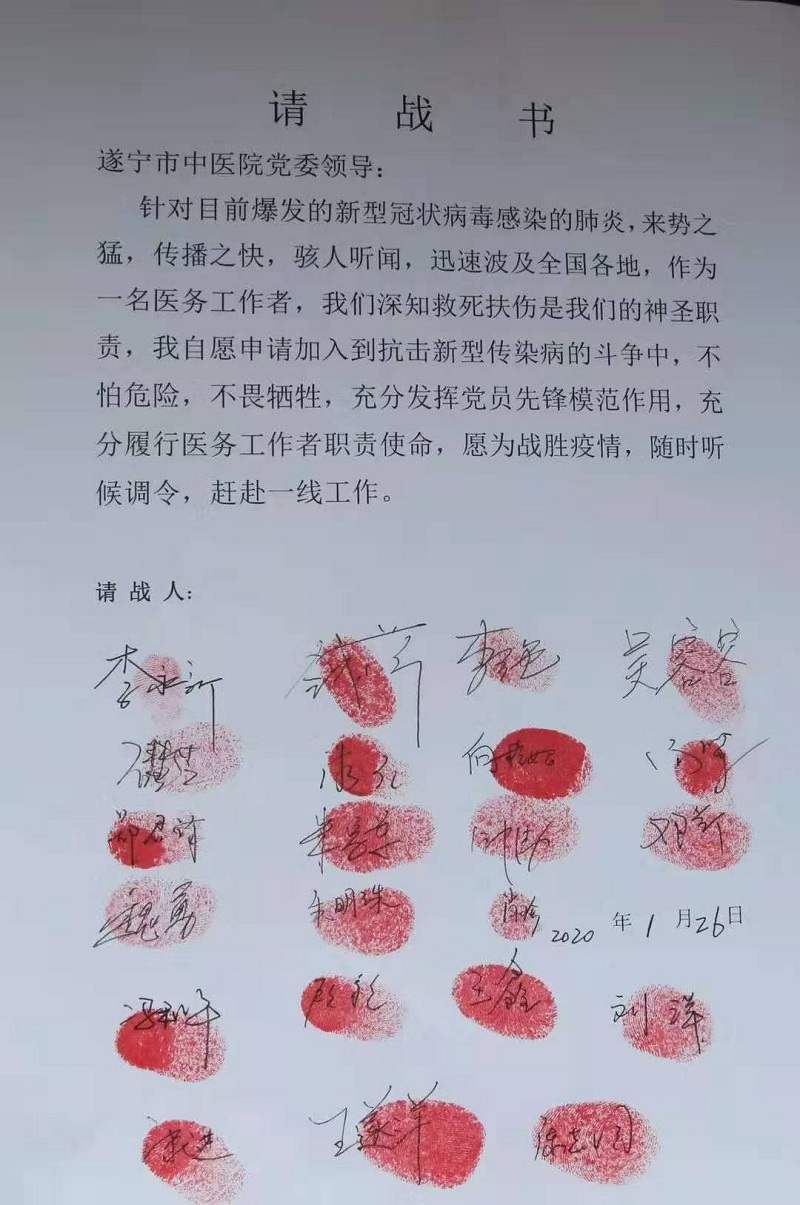 请战书
遂宁市中医院党委领导：
针对目前爆发的新型冠状病毒感染的肺炎，来势之
猛，传播之快，骇人听闻，迅速波及全国各地，作为
一名医务工作者，我们深知救死扶伤是我们的神圣职
责，我自愿申请加入到抗击新型传染病的斗争中，不
怕危险，不畏牺牲，充分发挥党员先锋模范作用，充
分履行医务工作者职责使命，愿为战胜疫情，随时听
候调令，赶赴一线工作。
请战人：
吴容容
魏勇 朱明珠 2020年1月26日
王鑫 刘洋